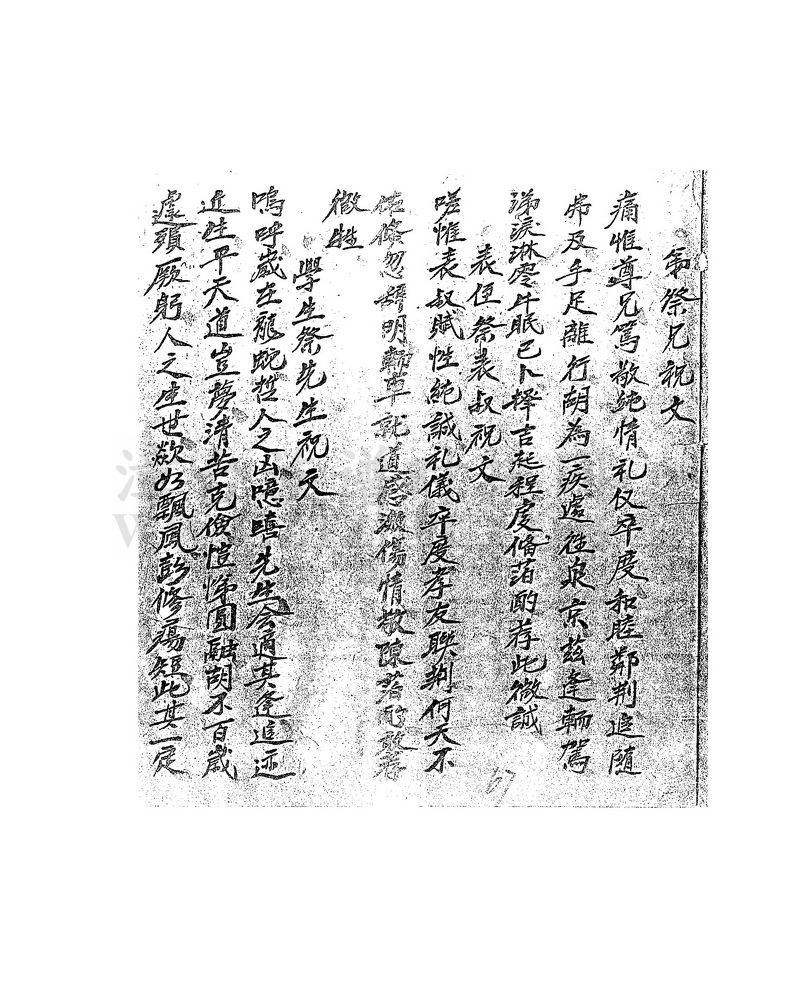 弟祭兄祝文
痛惟尊兄篤敬純情礼仪卒度和睦鄰荆追随
常及手足離行胡為一疾遽往泉京茲逢輀駕
涕淚淋零牛眠已卜擇吉起程虔俻菲酌荐此微誠
表侄祭表叔祝文
嗟惟表叔賦性純誠礼儀卒度孝友聯荆何天不
佑倏忽 明輀車就道感 傷情敬陳 荐
微牲
學生祭先生祝文
嗚呼歲在龍蛇哲人之凶噫嘻先生会適其逢追迹
近生平天道豈夢清苦克儉愷悌圓融胡不百歲
遽頭厥躬人之生世欻如飄風彭修殤短此其一定
67